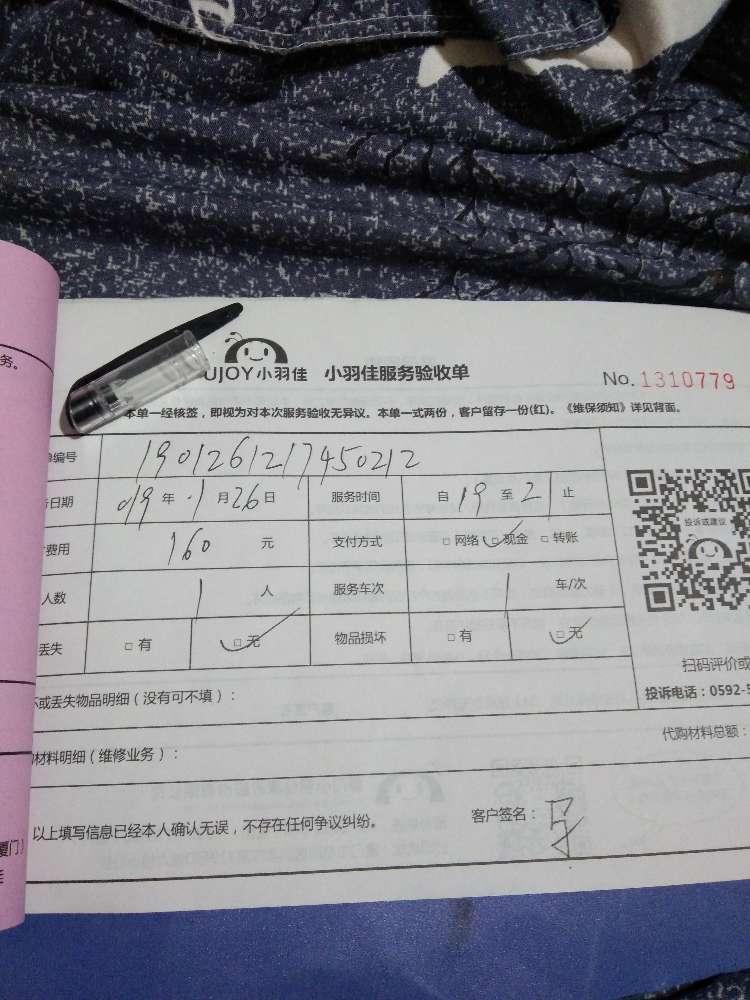 务。
UJOY小羽佳 小羽佳服务验收单
No. 1310779
本单一经核签，即视为对本次服务验收无异议。本单一式两份，客户留存一份(红)。《维保须知》详见背面。
编号 1901261217450212
日期 019年 1月26日 服务时间 自19至21止
费用 160 元 支付方式 □网络 □现金 □转账
人数 1 人 服务车次 1 车/次
丢失 □有 □无 物品损坏 □有 □无
投诉或建议
扫码评价或
投诉电话：0592-5
或丢失物品明细（没有可不填）：
材料明细（维修业务）： 代购材料总额：
以上填写信息已经本人确认无误，不存在任何争议纠纷。 客户签名：
厦门）